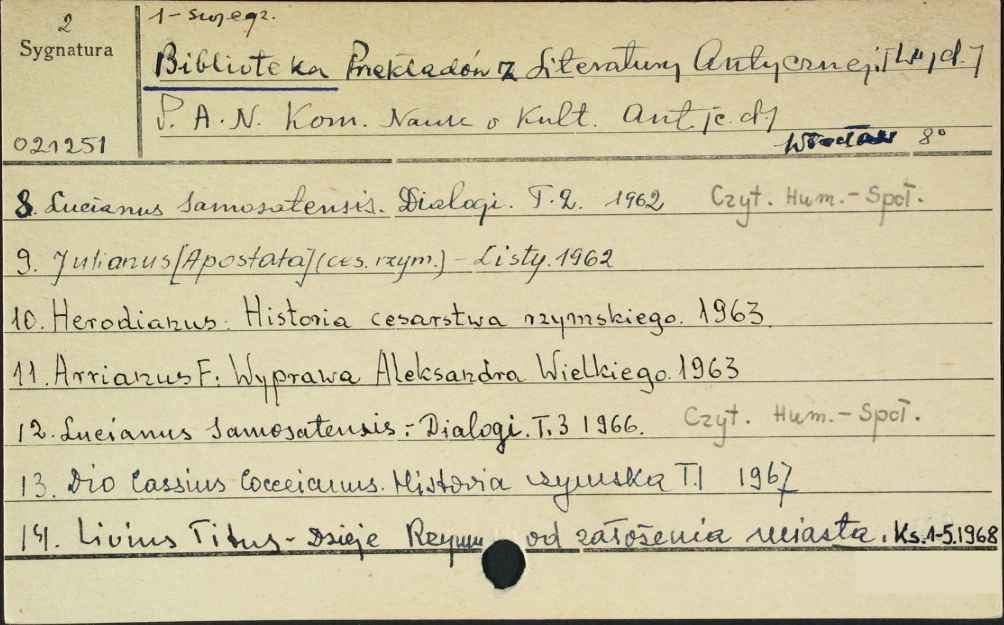 2
Sygnatura
021251
1-szy egz.
Biblioteka Przekładów z Literatury Antycznej. [Wyd.]
P.A.N. Kom. Nauk o Kult. Ant[ic.d.]
Wrocław 8°
8. Lucianus Samosatensis. Dialogi. T.2. 1962 Czyt. Hum.-Społ.
9. Julianus [Apostata] (ces. rzym.) - Listy. 1962
10. Herodianus: Historia cesarstwa rzymskiego. 1963.
11. Arrianus F. Wyprawa Aleksandra Wielkiego. 1963
12. Lucianus Samosatensis - Dialogi. T.3 1966. Czyt. Hum.-Społ.
13. Dio Cassius Cocceianus. Historia rzymska T.I 1967
14. Livius Titus - Dzieje Rzymu od założenia miasta. Ks.1-5.1968